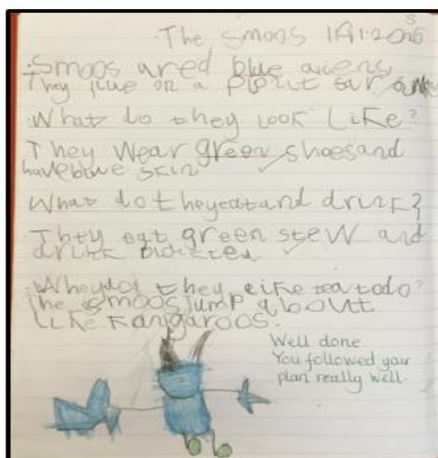 The smoos
Smoos ared blue aiens
They live on a
What do they look Like?
They Wear green shoesand
have blue skin
What do theyeatand drink?
They eat green stew and
drink
they like
The smoos Jump about
Like Kangaroos.
Well done
You followed your
plan really well.